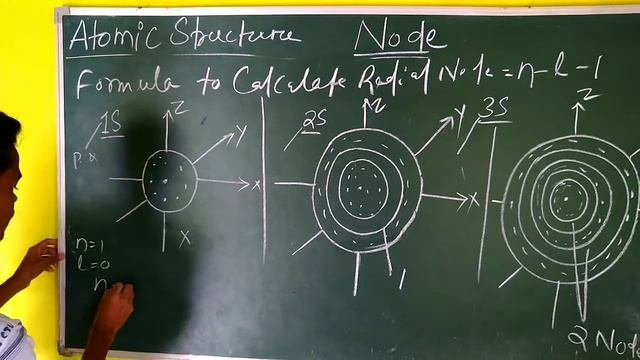 Atomic Structure Node
Formula to Calculate Radial Node = n-l-1
1S Z Y X X
2S Z Y X 1
3S Z 2 Node
n=1
l=0
n